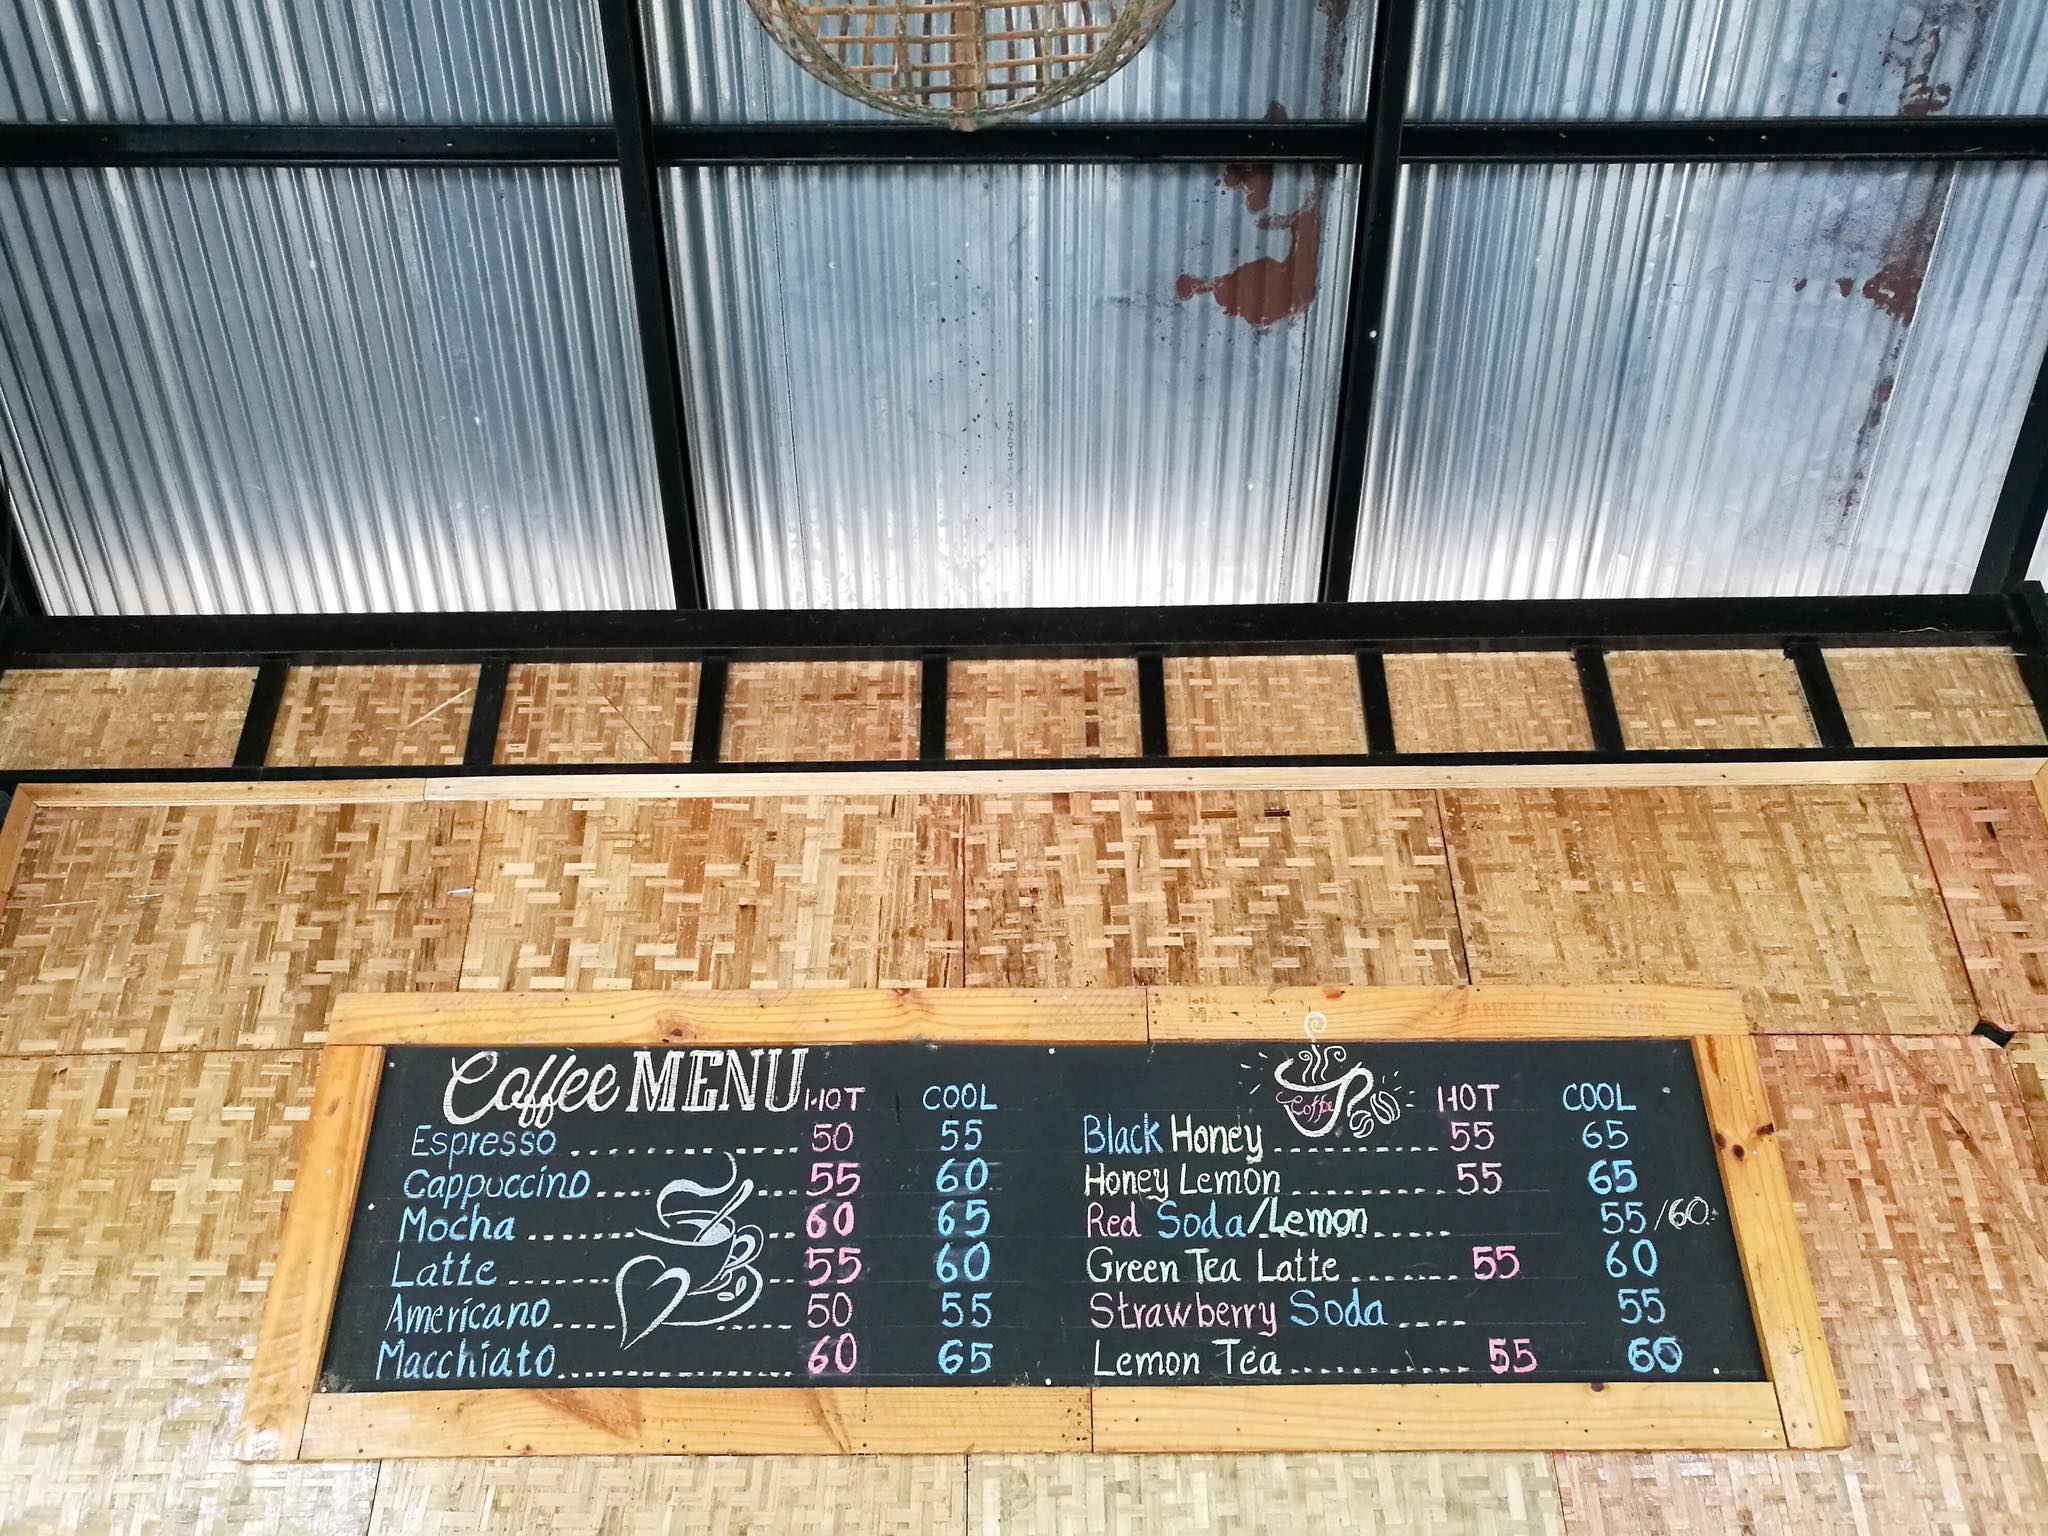 Coffee MENU HOT COOL
Espresso 50 55
Cappuccino 55 60
Mocha 60 65
Latte 55 60
Americano 50 55
Macchiato 60 65
HOT COOL
Black Honey 55 65
Honey Lemon 55 65
Red Soda/Lemon 55/60
Green Tea Latte 55 60
Strawberry Soda 55
Lemon Tea 55 60